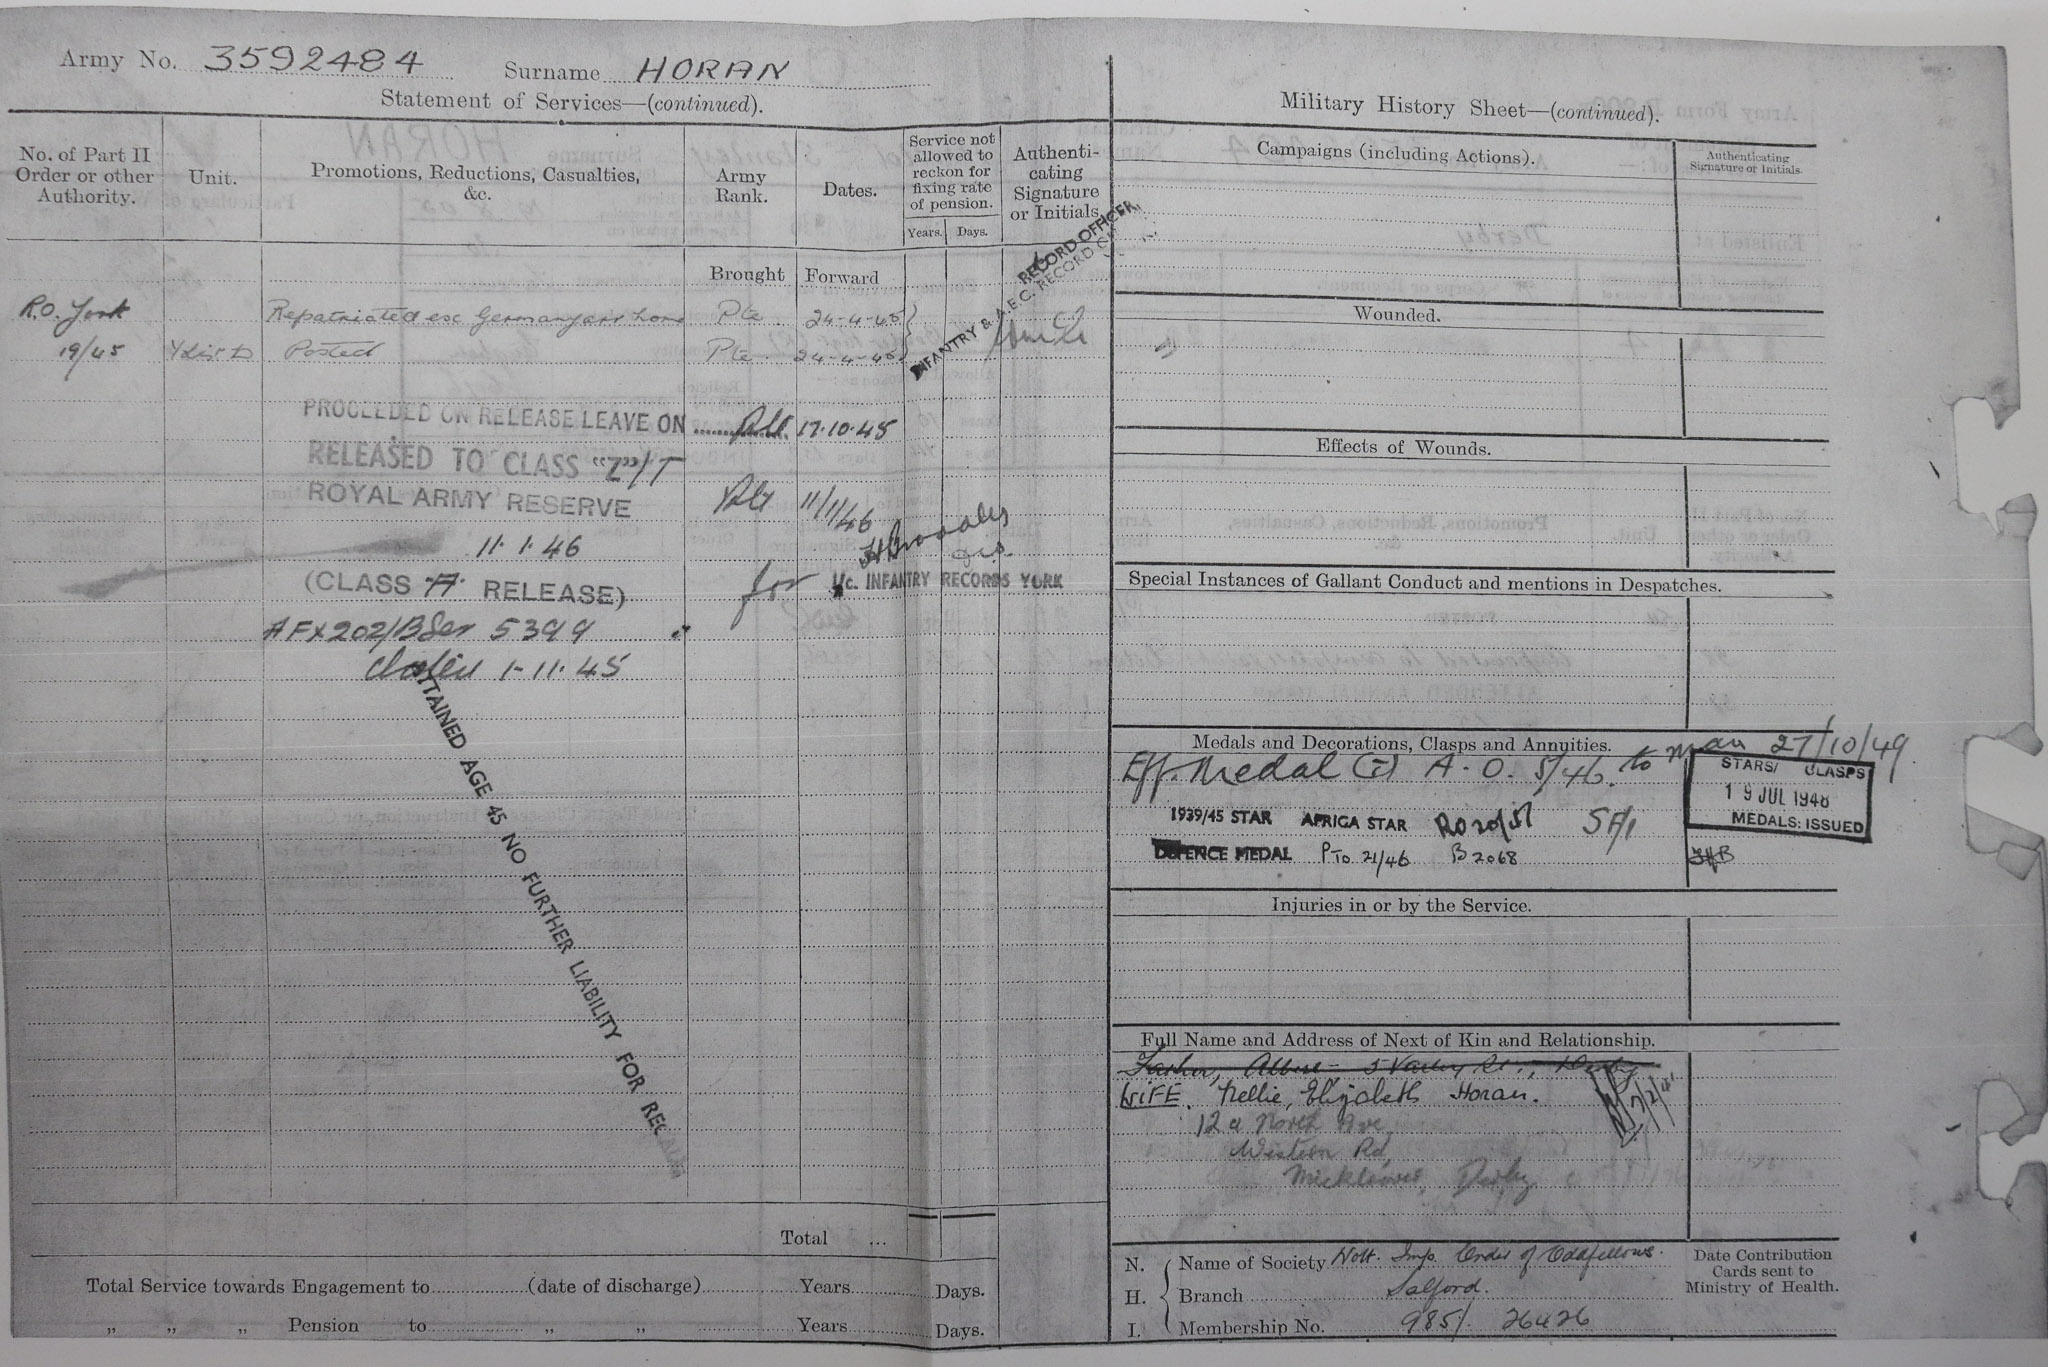 Army No. 3592484 Surname HORAN
Statement of Services—(continued).
No. of Part II Order or other Authority.
Unit.
Promotions, Reductions, Casualties, &c.
Army Rank.
Dates.
Service not allowed to reckon for fixing rate of pension.
Years. Days.
Authenti-cating Signature or Initials.
Brought Forward
RECORD OFFICER,
INFANTRY & A.E.C. RECORD
R.O. York Repatriated ex Germany arr home Pte. 24-4-45
19/45 Y List D Posted Pte. 24-4-45
PROCEEDED ON RELEASE LEAVE ON 17.10.45
RELEASED TO CLASS "Z"/T
ROYAL ARMY RESERVE 11/1/46
11.1.46
(CLASS "A" RELEASE) for i/c. INFANTRY RECORDS YORK
AFX202/B Ser 5399
dated 1-11.45
ATTAINED AGE 45 NO FURTHER LIABILITY FOR RECALL
Total ...
Total Service towards Engagement to (date of discharge) Years Days.
„ „ „ Pension to „ „ Years Days.
Military History Sheet—(continued).
Campaigns (including Actions).
Authenticating Signature or Initials.
Wounded.
Effects of Wounds.
Special Instances of Gallant Conduct and mentions in Despatches.
Medals and Decorations, Clasps and Annuities.
Eff. Medal (T) A.O. 5/46. to man 27/10/49.
STARS/ CLASPS
19 JUL 1948
MEDALS: ISSUED
1939/45 STAR AFRICA STAR RO 20/
DEFENCE MEDAL PTO 21/46 B2068
Injuries in or by the Service.
Full Name and Address of Next of Kin and Relationship.
Father, Albert 5 Varley St., Derby
WIFE. Nellie, Elizabeth Horan.
12a North Ave,
Western Rd,
Mickleover, Derby
N. H. I.
Name of Society Nott. Imp. Order of Oddfellows.
Branch Salford.
Membership No. 985/. 26426
Date Contribution Cards sent to Ministry of Health.